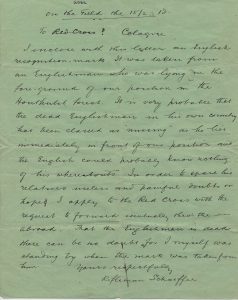 on the Field the 15/2 - 15
To Red-Cross! Cologne
I enclose with this letter an English
recognition-mark. It was taken from
an Englishman who was lying in the
fore-ground of our position in the
Houthulst forest. It is very probable that
the dead Englishman in his own country
has been classed as "missing" as he lies
immediately in front of our position and
the English could probably know nothing
of his whereabouts. In order to spare his
relatives useless and painful doubts or
hopes I apply to the Red Cross with the
request to forward eventually these
abroad. That the Englishman is dead
there can be no doubt, for I myself was
standing by when the mark was taken from
him.
Yours respectfully
Rifleman Schaeffer